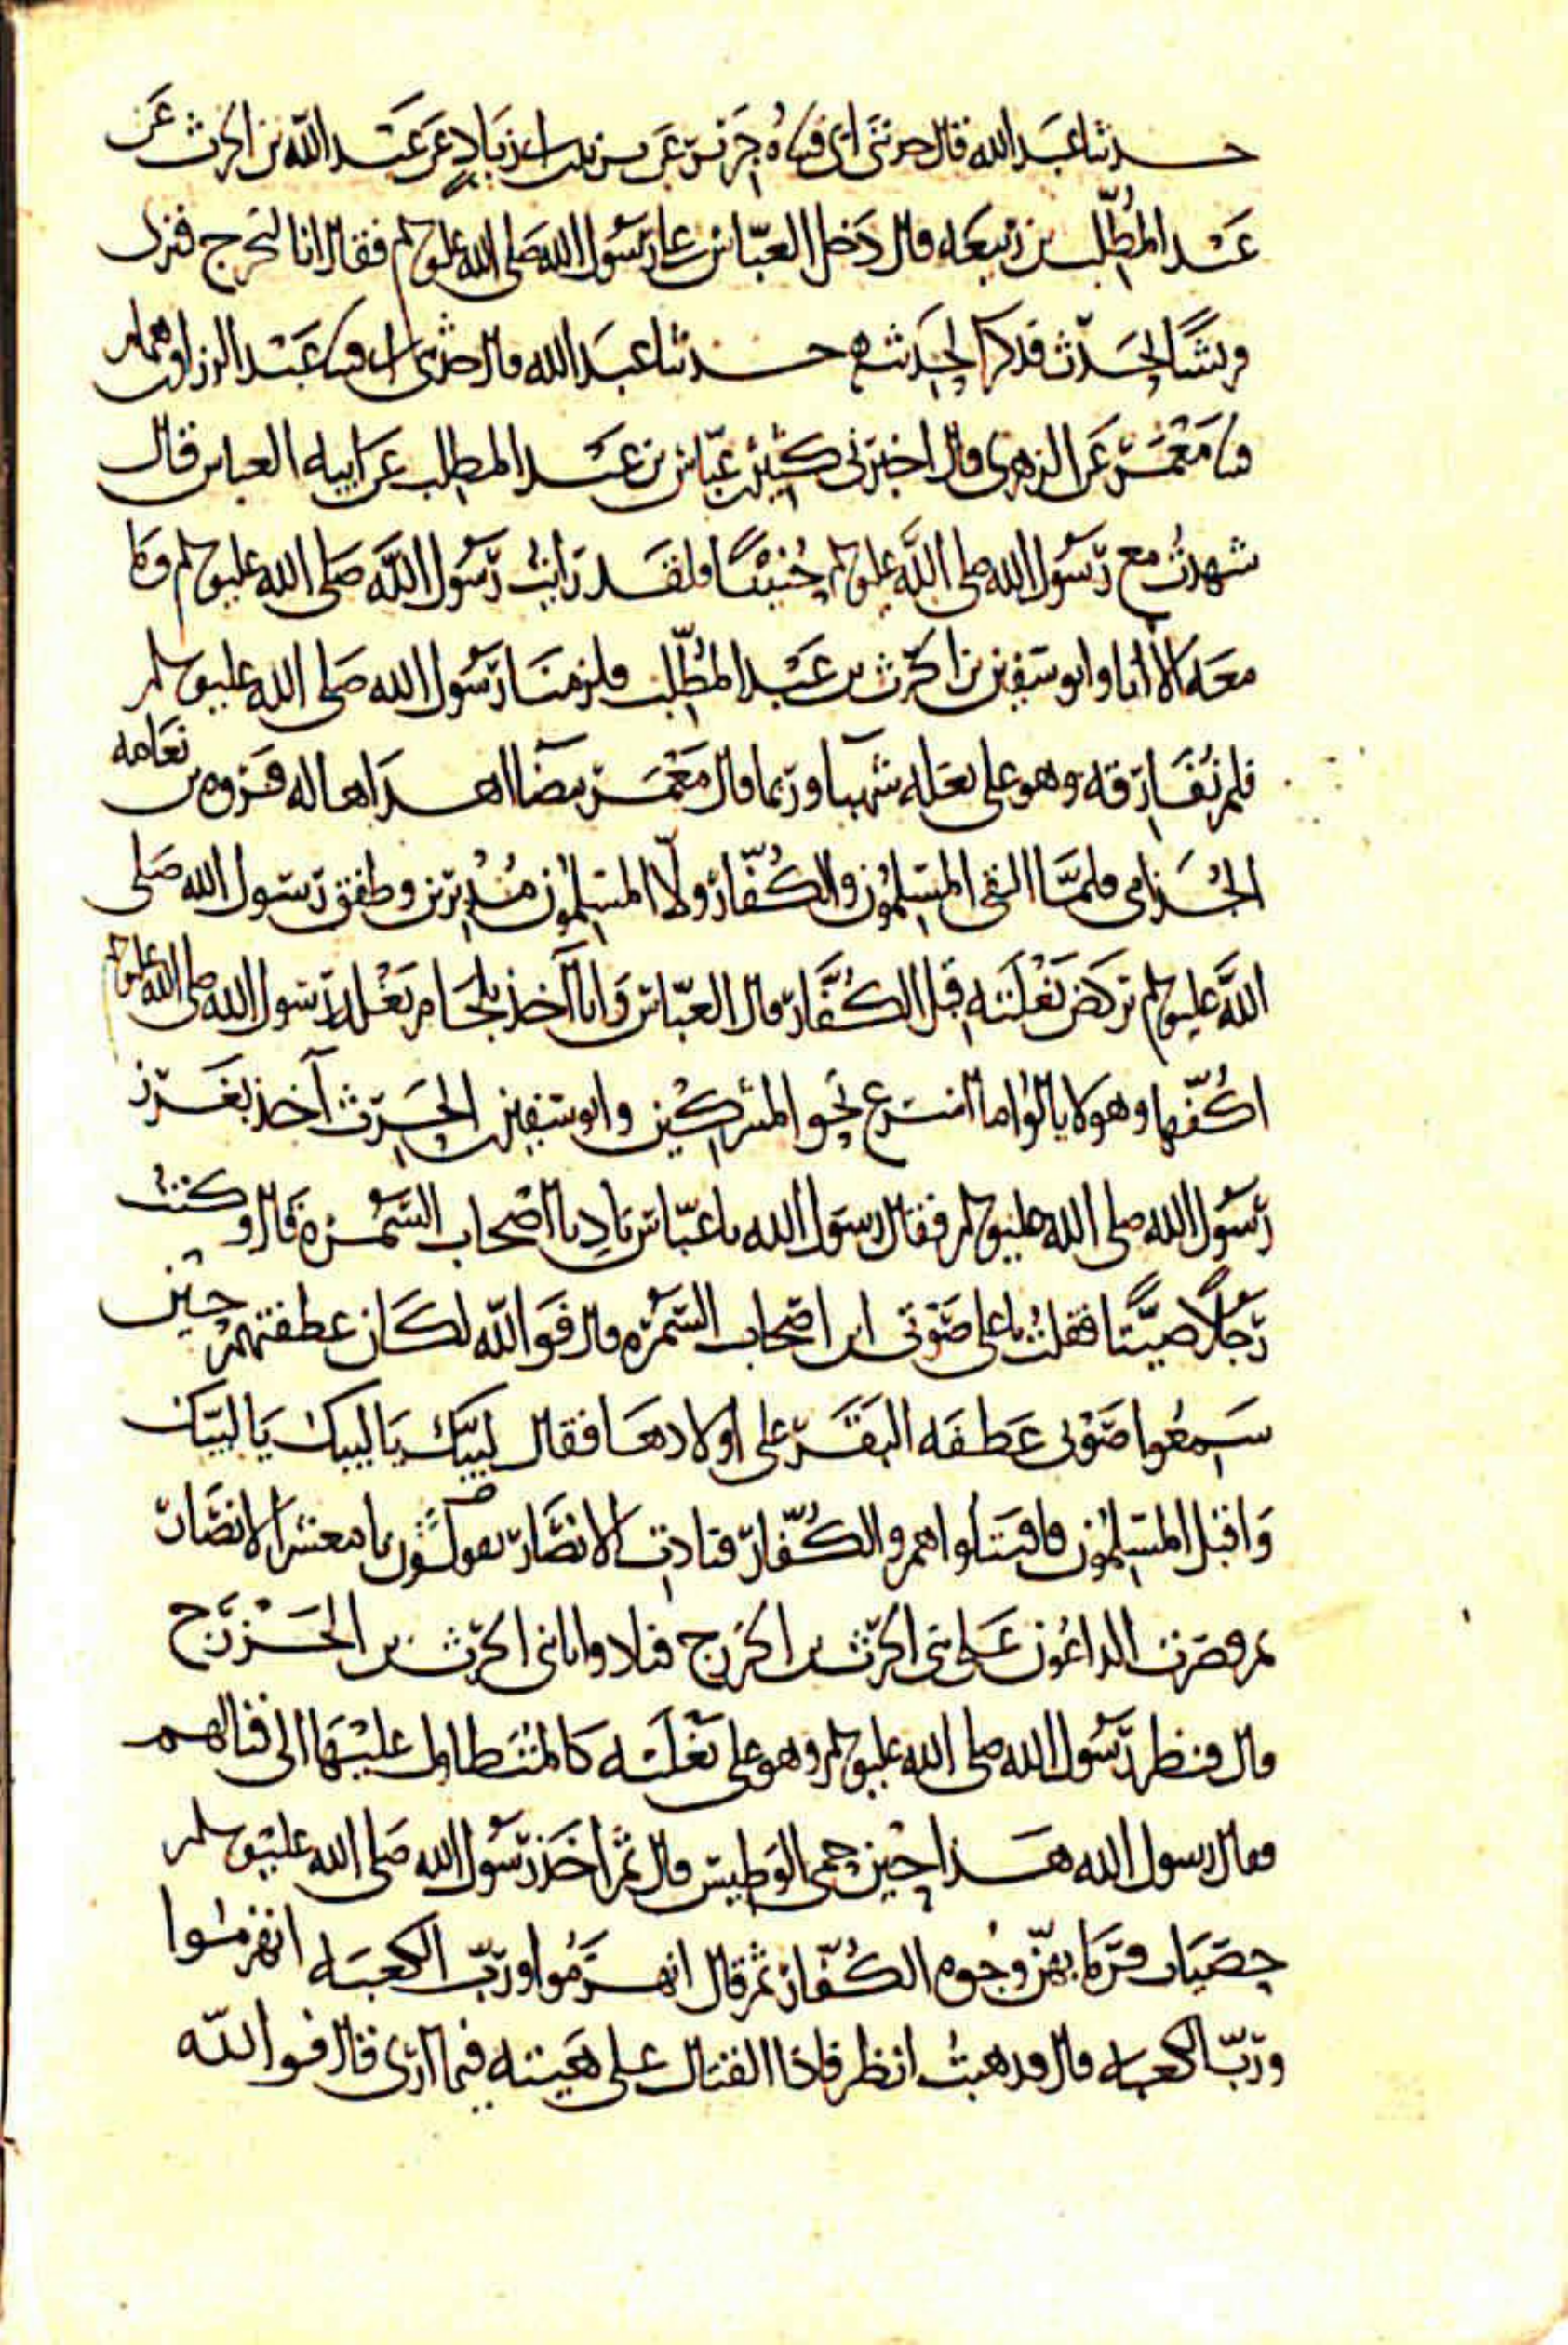 حدثنا عبد الله قال حدثنى ابى قثناه جرير عن يزيد بن ابى زياد عن عبد الله بن الحرث عن
عبد المطلب بن ربيعه قال دخل العباس على رسول الله صلى الله عليه وسلم فقال انا لنخرج فنرى
قريشا تحدث فذكر الحديث حدثنا عبد الله قال حدثنى ابى قثنا عبد الرزاق بن همام
قثنا معمر عن الزهرى قال اخبرنى كثير بن عباس بن عبد المطلب عن ابيه العباس قال
شهدت مع رسول الله صلى الله عليه وسلم حنينا ولقد رايت رسول الله صلى الله عليه وسلم وما
معه الا انا وابو سفين بن الحرث بن عبد المطلب فلزمنا رسول الله صلى الله عليه وسلم
فلم نفارقه وهو على بغله شهبا وربما قال معمر بيضا اهداها له فروه بن نعامه
الجذامى فلما التقى المسلمون والكفار ولا المسلمون مدبرين وطفق رسول الله صلى
الله عليه وسلم يركض بغلته قبل الكفار قال العباس وانا آخذ بلجام بغله رسول الله صلى الله عليه وسلم
اكفها وهو لا يالوا ما اسرع نحو المشركين وابو سفين بن الحرث آخذ بغرز
رسول الله صلى الله عليه وسلم فقال رسول الله يا عباس ناد يا اصحاب السمره قال وكنت
رجلا صيتا فقلت باعلى صوتى اين اصحاب السمره قال فوالله لكان عطفتهم حين
سمعوا صوتى عطفه البقر على اولادها فقال لبيك يا لبيك يا لبيك
واقبل المسلمون فاقتتلوا هم والكفار فنادت الانصار يقولون يا معشر الانصار
ثم قصرت الداعون على بنى الحرث بن الخزرج فنادوا يا بنى الحرث بن الخزرج
قال فنظر رسول الله صلى الله عليه وسلم وهو على بغلته كالمتطاول عليها الى قتالهم
فقال رسول الله هذا حين حمى الوطيس قال ثم اخذ رسول الله صلى الله عليه وسلم
حصيات فرما بهن وجوه الكفار ثم قال انهزموا ورب الكعبه انهزموا
ورب الكعبه قال فذهبت انظر فاذا القتال على هيئته فيما ارى قال فوالله